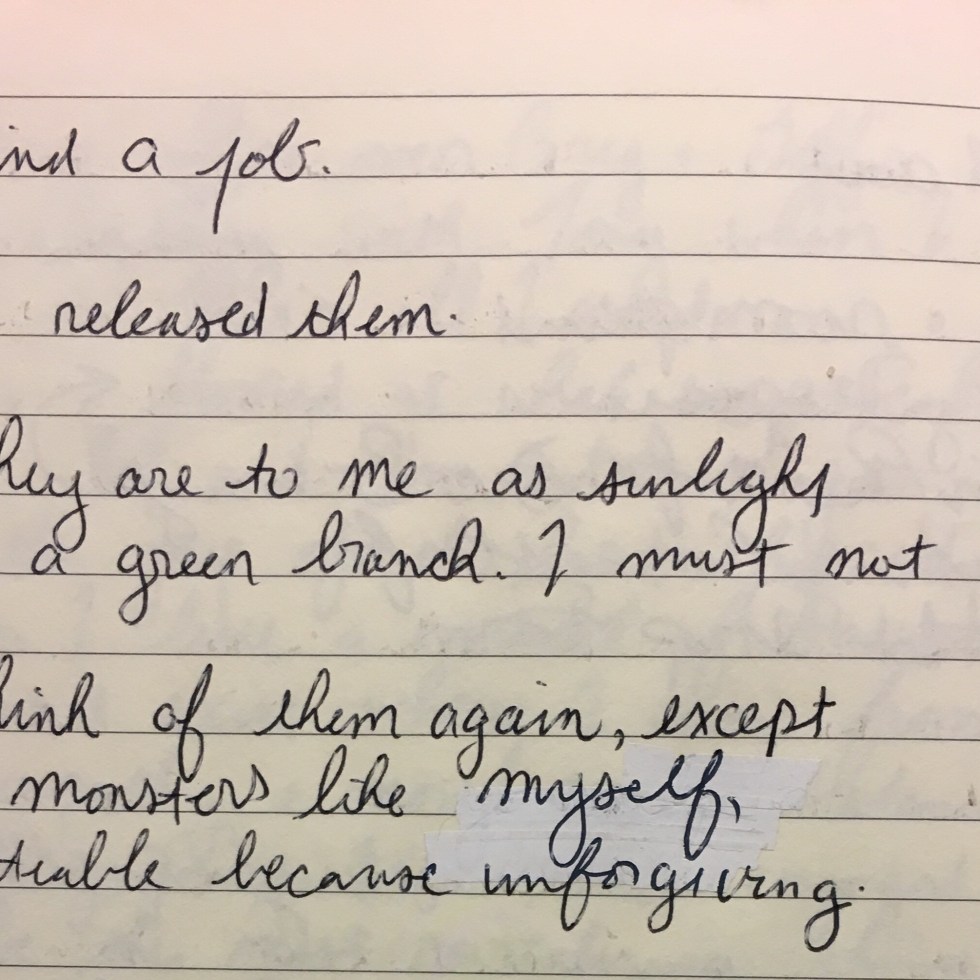 ind a job.
released them.
hey are to me as sunlight
a green branch. I must not
hink of them again, except
monsters like myself,
because unforgiving.